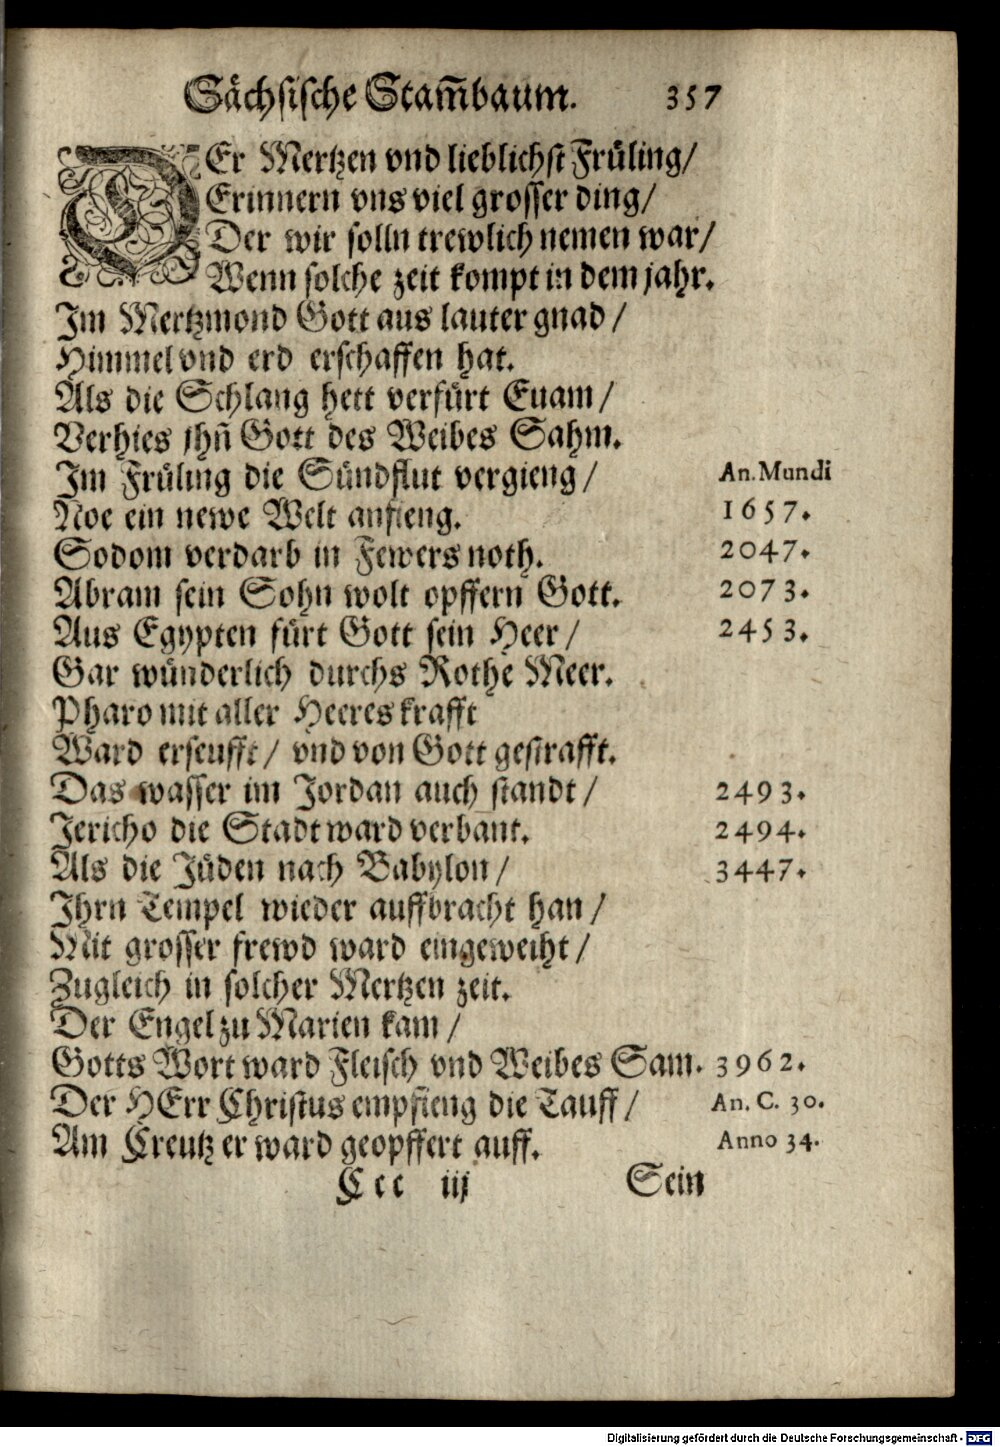 Sächsische Stam̄baum. 357
DEr Mertzen vnd lieblichst Früling/
Erinnern vns viel grosser ding/
Der wir solln trewlich nemen war/
Wenn solche zeit kompt in dem jahr.
Im Mertzmond Gott aus lauter gnad/
Himmel vnd erd erschaffen hat.
Als die Schlang hett verfürt Euam/
Verhies jhn̄ Gott des Weibes Sahm.
Im Früling die Sündflut vergieng/ An. Mundi
Noe ein newe Welt anfieng. 1657.
Sodom verdarb in Fewers noth. 2047.
Abram sein Sohn wolt opffern Gott. 2073.
Aus Egypten fürt Gott sein Heer/ 2453.
Gar wünderlich durchs Rothe Meer.
Pharo mit aller Heeres krafft
Ward erseufft/ vnd von Gott gestrafft.
Das wasser im Jordan auch standt/ 2493.
Jericho die Stadt ward verbant. 2494.
Als die Jüden nach Babylon/ 3447.
Ihrn Tempel wieder auffbracht han/
Mit grosser frewd ward eingeweiht/
Zugleich in solcher Mertzen zeit.
Der Engel zu Marien kam/
Gotts Wort ward Fleisch vnd Weibes Sam. 3962.
Der HErr Christus empfieng die Tauff/ An. C. 30.
Am Creutz er ward geopffert auff. Anno 34.
Ccc iij Sein
Digitalisierung gefördert durch die Deutsche Forschungsgemeinschaft - DFG